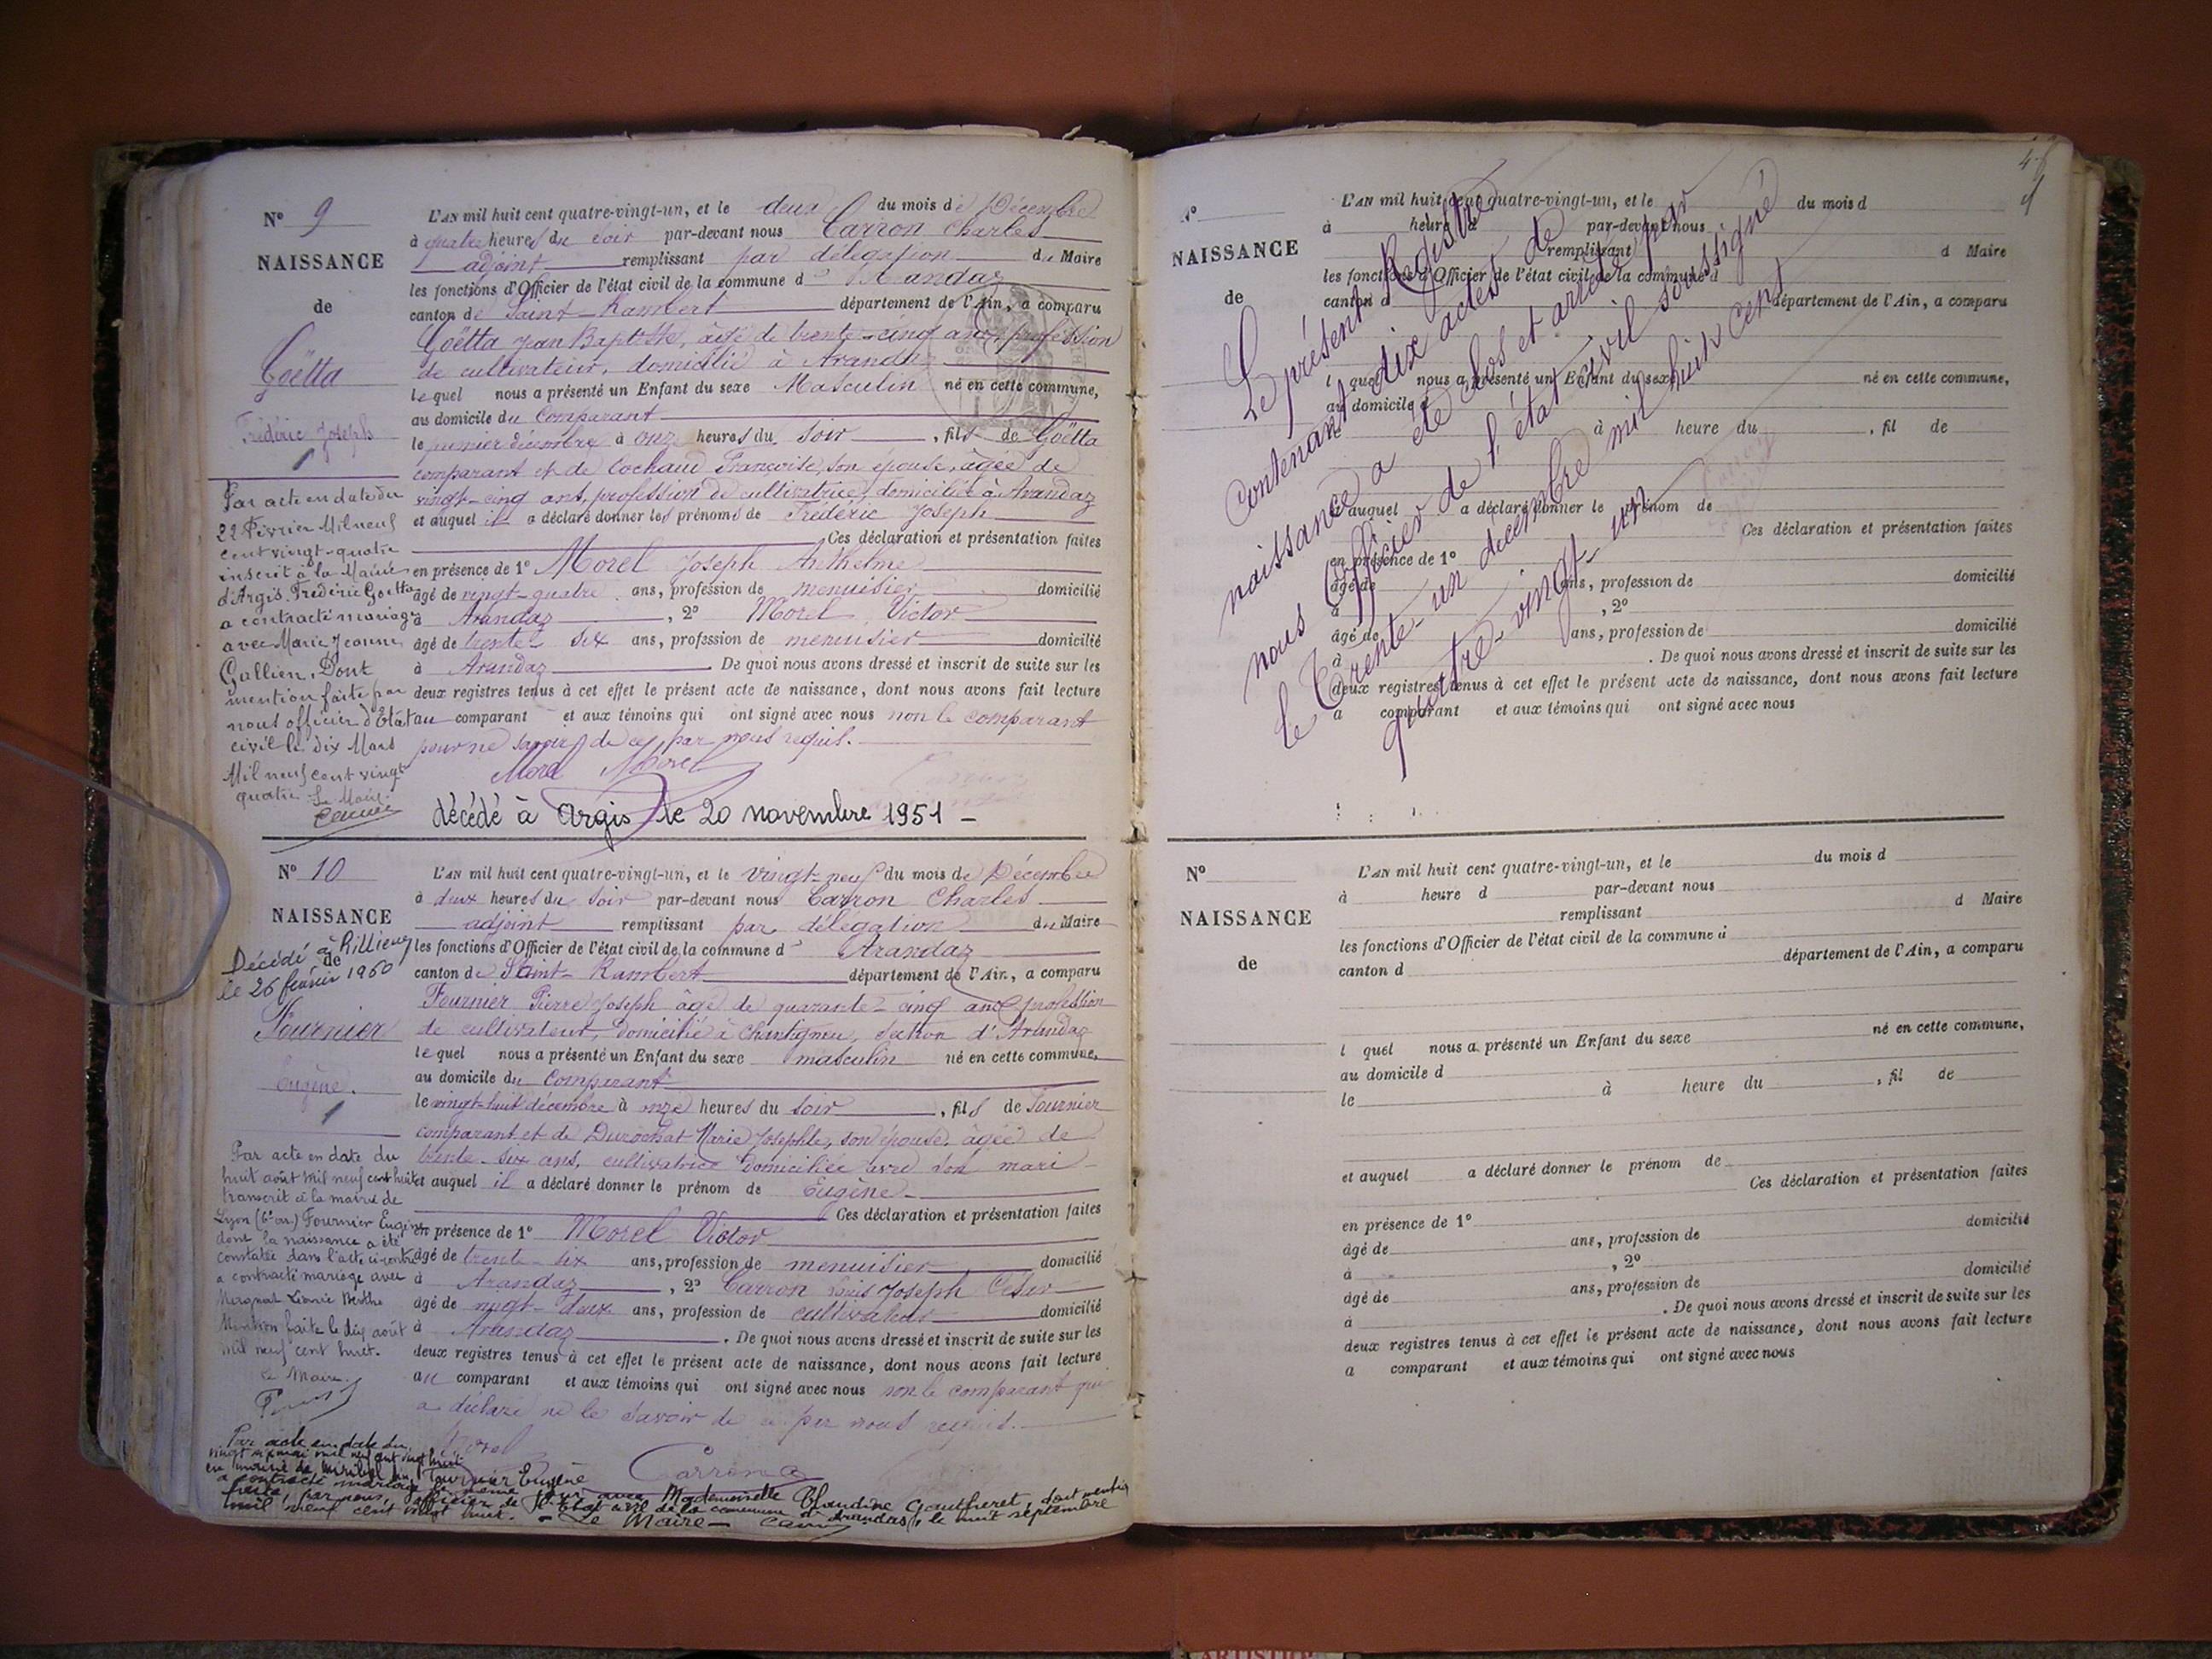 N° 9
NAISSANCE
de
Goëtta
Frédéric Joseph
Par acte en date du
22 Février Mil neuf
cent vingt-quatre
inscrit à la Mairie
d'Argis. Frédéric Goëtta
a contracté mariage
avec Marie Jeanne
Gallien, Dont
mention faite par
nous officier d'Etat
civil le dix Mars
Mil neuf cent vingt
quatre Le Maire
L'AN mil huit cent quatre-vingt-un, et le deux du mois de Décembre
à quatre heures du soir par-devant nous Carron Charles
adjoint remplissant par délégation du Maire
les fonctions d'Officier de l'état civil de la commune d' Arandaz
canton de Saint-Rambert département de l'Ain, a comparu
Goëtta Jean Baptiste, âgé de trente-cinq ans, profession
de cultivateur, domicilié à Arandaz
lequel nous a présenté un Enfant du sexe Masculin né en cette commune,
au domicile du Comparant
le premier décembre à onze heures du soir, fils de Goëtta
comparant et de Cochaud Françoise, son épouse, âgée de
vingt-cinq ans, profession de cultivatrice, domiciliée à Arandaz
et auquel il a déclaré donner les prénoms de Frédéric Joseph
Ces déclaration et présentation faites
en présence de 1° Morel Joseph Anthelme
âgé de vingt-quatre ans, profession de menuisier domicilié
à Arandaz, 2° Morel Victor
âgé de trente-six ans, profession de menuisier domicilié
à Arandaz. De quoi nous avons dressé et inscrit de suite sur les
deux registres tenus à cet effet le présent acte de naissance, dont nous avons fait lecture
au comparant et aux témoins qui ont signé avec nous non le comparant
pour ne savoir de ce par nous requis.
Morel Morel
décédé à Argis le 20 novembre 1951 -
N° 10
NAISSANCE
de
Décédé à Rillieux
le 26 février 1960
Fournier
Eugène.
Par acte en date du
huit août mil neuf cent huit
transcrit à la mairie de
Lyon (6e arr) Fournier Eugène
dont la naissance a été
constatée dans l'acte ci-contre
a contracté mariage avec
Berthe
Mention faite le dix août
mil neuf cent huit.
Le Maire.
L'AN mil huit cent quatre-vingt-un, et le vingt-neuf du mois de Décembre
à deux heures du soir par-devant nous Carron Charles
adjoint remplissant par délégation du Maire
les fonctions d'Officier de l'état civil de la commune d' Arandaz
canton de Saint-Rambert département de l'Ain, a comparu
Fournier Pierre Joseph âgé de quarante-cinq ans profession
de cultivateur, domicilié à section d'Arandaz
lequel nous a présenté un Enfant du sexe masculin né en cette commune,
au domicile du Comparant
le vingt-huit décembre à onze heures du soir, fils de Fournier
comparant et de Durochat Marie Josephte, son épouse, âgée de
trente-six ans, cultivatrice domiciliée avec son mari
et auquel il a déclaré donner le prénom de Eugène
Ces déclaration et présentation faites
en présence de 1° Morel Victor
âgé de trente-six ans, profession de menuisier domicilié
à Arandaz, 2° Carron Louis Joseph César
âgé de vingt-deux ans, profession de cultivateur domicilié
à Arandaz. De quoi nous avons dressé et inscrit de suite sur les
deux registres tenus à cet effet le présent acte de naissance, dont nous avons fait lecture
au comparant et aux témoins qui ont signé avec nous non le comparant qui
a déclaré ne le savoir de ce par nous requis.
Morel
Carron
Par acte en date du
vingt mai mil neuf cent vingt huit
en mairie de Miribel Ain, Fournier Eugène
a contracté mariage avec Mademoiselle Blandine Gautheret, dont mention
faite, par nous, officier de l'Etat civil de la commune d'Arandas, le huit septembre
mil neuf cent vingt huit. - Le Maire -
N°
NAISSANCE
de
L'AN mil huit cent quatre-vingt-un, et le du mois d
à heure d par-devant nous
remplissant d Maire
les fonctions d'Officier de l'état civil de la commune d
canton d département de l'Ain, a comparu
l quel nous a présenté un Enfant du sexe né en cette commune,
au domicile d
le à heure du , fil de
et auquel a déclaré donner le prénom de
Ces déclaration et présentation faites
en présence de 1°
âgé de ans, profession de domicilié
à , 2°
âgé de ans, profession de domicilié
à . De quoi nous avons dressé et inscrit de suite sur les
deux registres tenus à cet effet le présent acte de naissance, dont nous avons fait lecture
a comparant et aux témoins qui ont signé avec nous
Le présent Registre
contenant dix actes de
naissance a été clos et arrêté par
nous Officier de l'état civil soussigné
le Trente-un décembre mil huit cent
quatre-vingt-un
N°
NAISSANCE
de
L'AN mil huit cent quatre-vingt-un, et le du mois d
à heure d par-devant nous
remplissant d Maire
les fonctions d'Officier de l'état civil de la commune d
canton d département de l'Ain, a comparu
l quel nous a présenté un Enfant du sexe né en cette commune,
au domicile d
le à heure du , fil de
et auquel a déclaré donner le prénom de
Ces déclaration et présentation faites
en présence de 1°
âgé de ans, profession de domicilié
à , 2°
âgé de ans, profession de domicilié
à . De quoi nous avons dressé et inscrit de suite sur les
deux registres tenus à cet effet le présent acte de naissance, dont nous avons fait lecture
a comparant et aux témoins qui ont signé avec nous
ARTISTIQUE